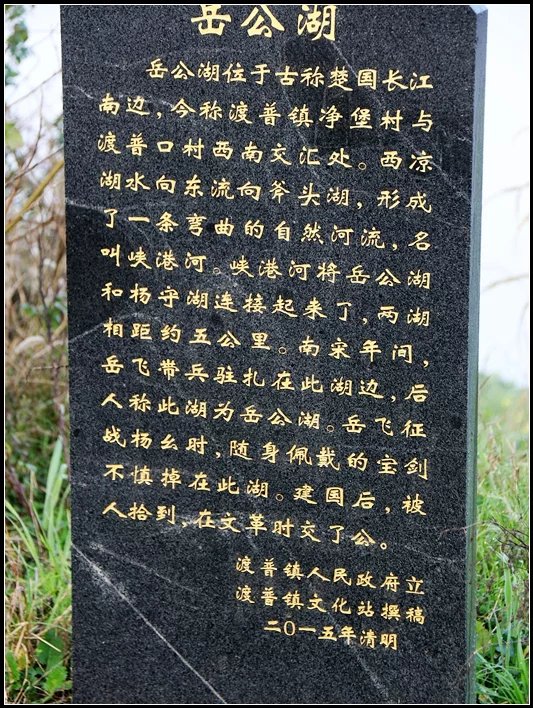 岳公湖
岳公湖位于古称楚国长江
南边，今称渡普镇净堡村与
渡普口村西南交汇处。西凉
湖水向东流向斧头湖，形成
了一条弯曲的自然河流，名
叫峡港河。峡港河将岳公湖
和杨守湖连接起来了，两湖
相距约五公里。南宋年间，
岳飞带兵驻扎在此湖边，后
人称此湖为岳公湖。岳飞征
战杨幺时，随身佩戴的宝剑
不慎掉在此湖。建国后，被
人拾到，在文革时交了公。
渡普镇人民政府立
渡普镇文化站撰稿
二0一五年清明